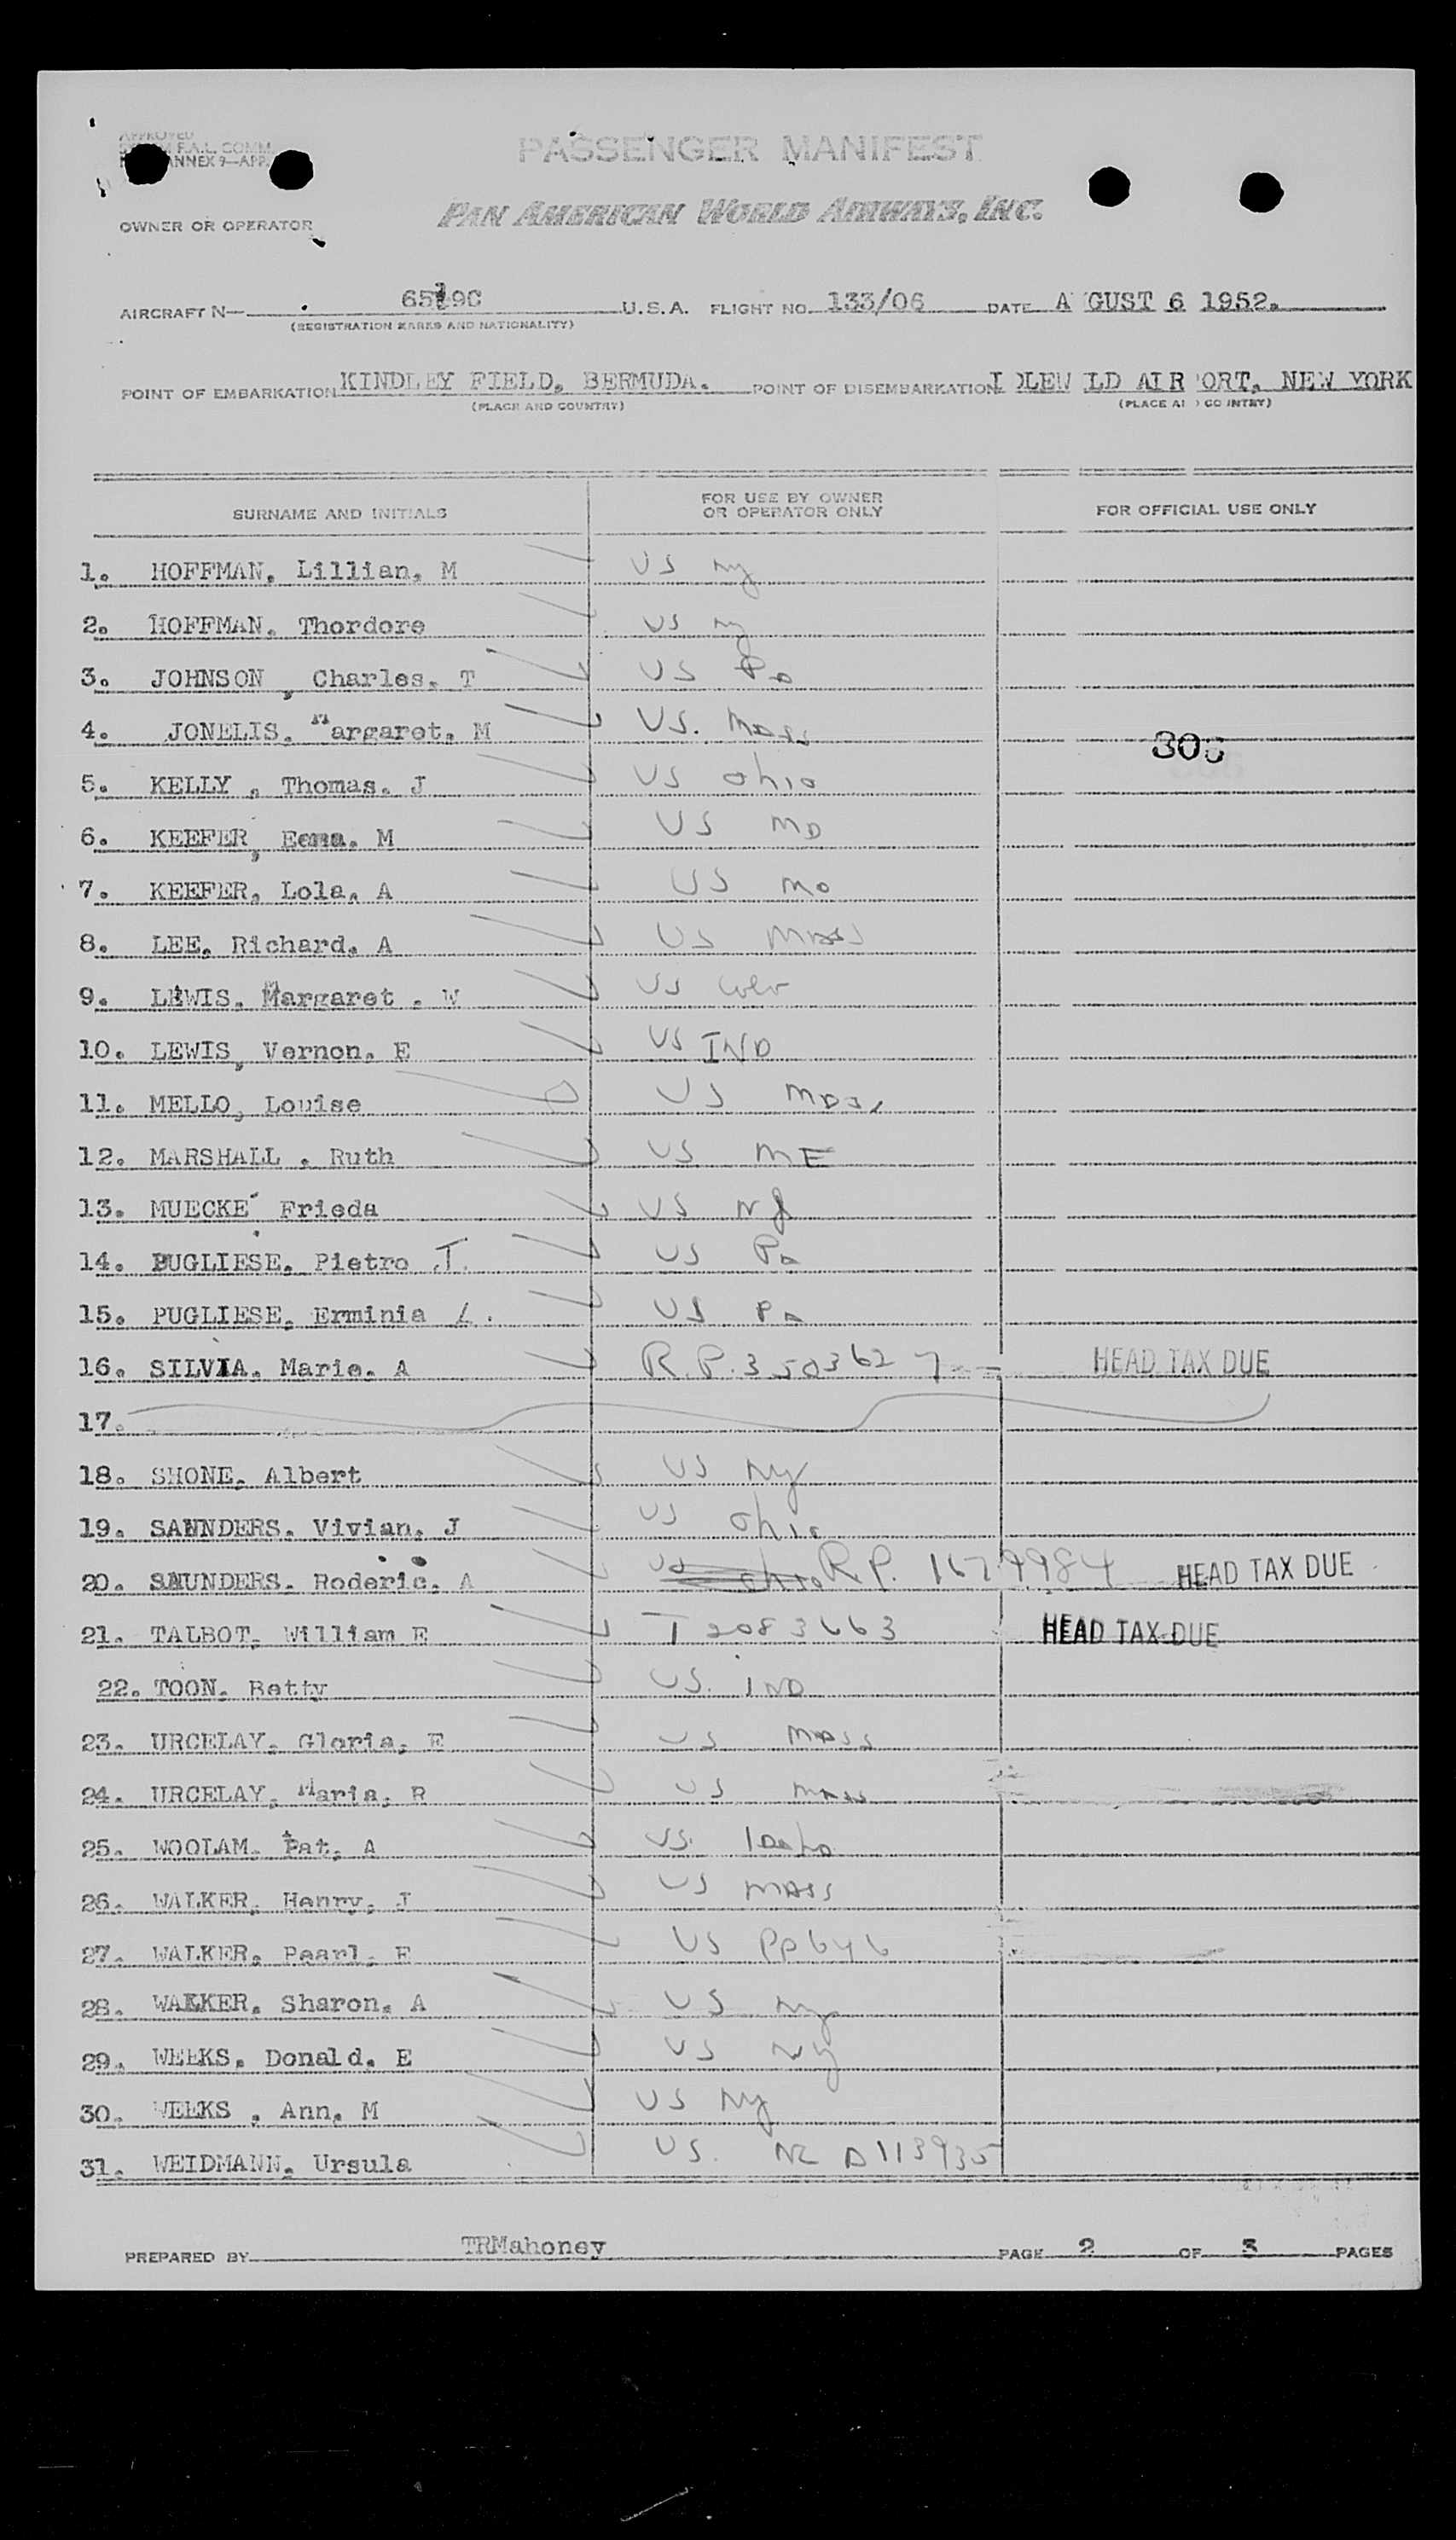 APPROVED
F.A.L. COMM.
ANNEX 9—APP.
PASSENGER MANIFEST
OWNER OR OPERATOR
PAN AMERICAN WORLD AIRWAYS, INC.
AIRCRAFT N— 6519C U.S.A. FLIGHT NO. 133/06 DATE A GUST 6 1952.
(REGISTRATION MARKS AND NATIONALITY)
POINT OF EMBARKATION KINDLEY FIELD, BERMUDA. POINT OF DISEMBARKATION I DLEW LD AIR ORT, NEW YORK
(PLACE AND COUNTRY) (PLACE A D CO NTRY)
SURNAME AND INITIALS FOR USE BY OWNER OR OPERATOR ONLY FOR OFFICIAL USE ONLY
1. HOFFMAN, Lillian, M US Ny
2. HOFFMAN, Thordore US Ny
3. JOHNSON , Charles, T US Pa
4. JONELIS, Margaret, M US. Mass
306
5. KELLY , Thomas, J US Ohio
6. KEEFER, M US MD
7. KEEFER, Lola, A US Mo
8. LEE, Richard, A US MASS
9. LEWIS, Margaret , W US Colo
10. LEWIS, Vernon, E US IND
11. MELLO, Louise US Mass
12. MARSHALL , Ruth US ME
13. MUECKE Frieda US NJ
14. PUGLIESE, Pietro J. US Pa
15. PUGLIESE, Erminia L. US Pa
16. SILVIA, Marie, A R.P. 3503627 HEAD TAX DUE
17.
18. SHONE, Albert US Ny
19. SAUNDERS, Vivian, J US Ohio
20. SAUNDERS, Roderic, A US Ohio R.P. 1679984 HEAD TAX DUE
21. TALBOT, William E T 2083663 HEAD TAX DUE
22. TOON, Betty US. IND
23. URCELAY, Gloria, E US Mass
24. URCELAY, Maria, R US Mass
25. WOOLAM, Pat, A US. Idaho
26. WALKER, Henry, J US MASS
27. WALKER, Pearl, E US PP646
28. WALKER, Sharon, A US Ny
29. WEEKS, Donald, E US Ny
30. WEEKS , Ann, M US Ny
31. WEIDMANN, Ursula US. NC D113935
PREPARED BY TRMahoney PAGE 2 OF 3 PAGES